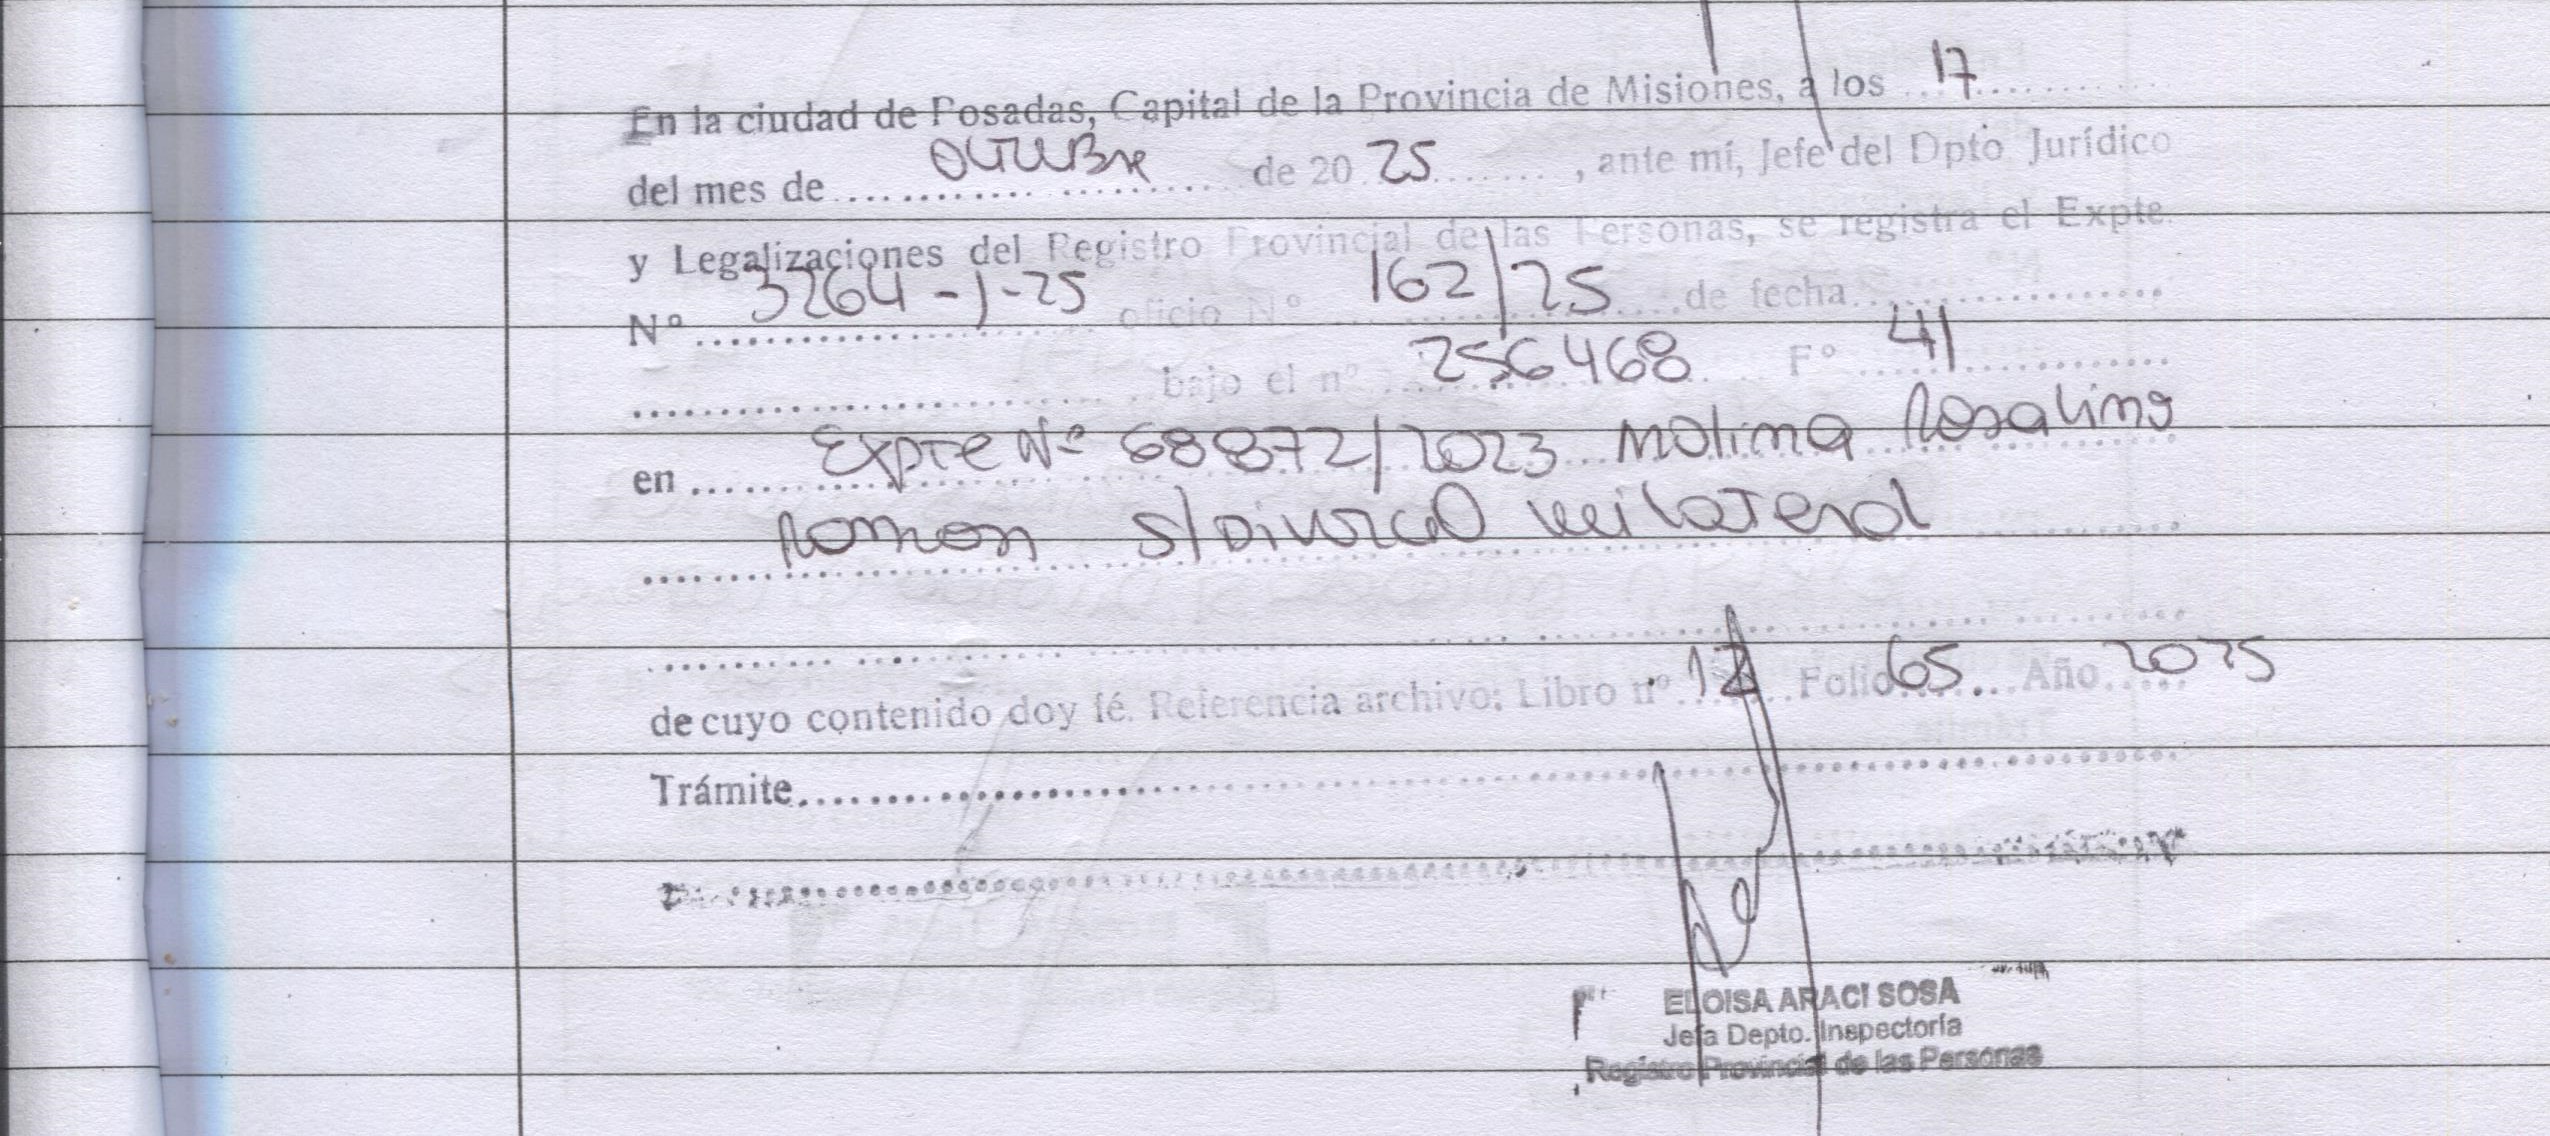 En la ciudad de Posadas, Capital de la Provincia de Misiones, a los 17
del mes de Octubre de 20 25, ante mí, Jefe del Dpto Jurídico
y Legalizaciones del Registro Provincial de las Personas, se registra el Expte.
Nº 3264-J-25 oficio Nº 162/25 de fecha
bajo el nº 256468 Fº 41
en Expte Nº 68872/2023 Molina Rosalino
Ramon s/Divorcio unilateral
de cuyo contenido doy fé. Referencia archivo: Libro nº Folio 65 Año 2025
Trámite
ELOISA ARACI SOSA
Jefa Depto. Inspectoría
Registro Provincial de las Personas